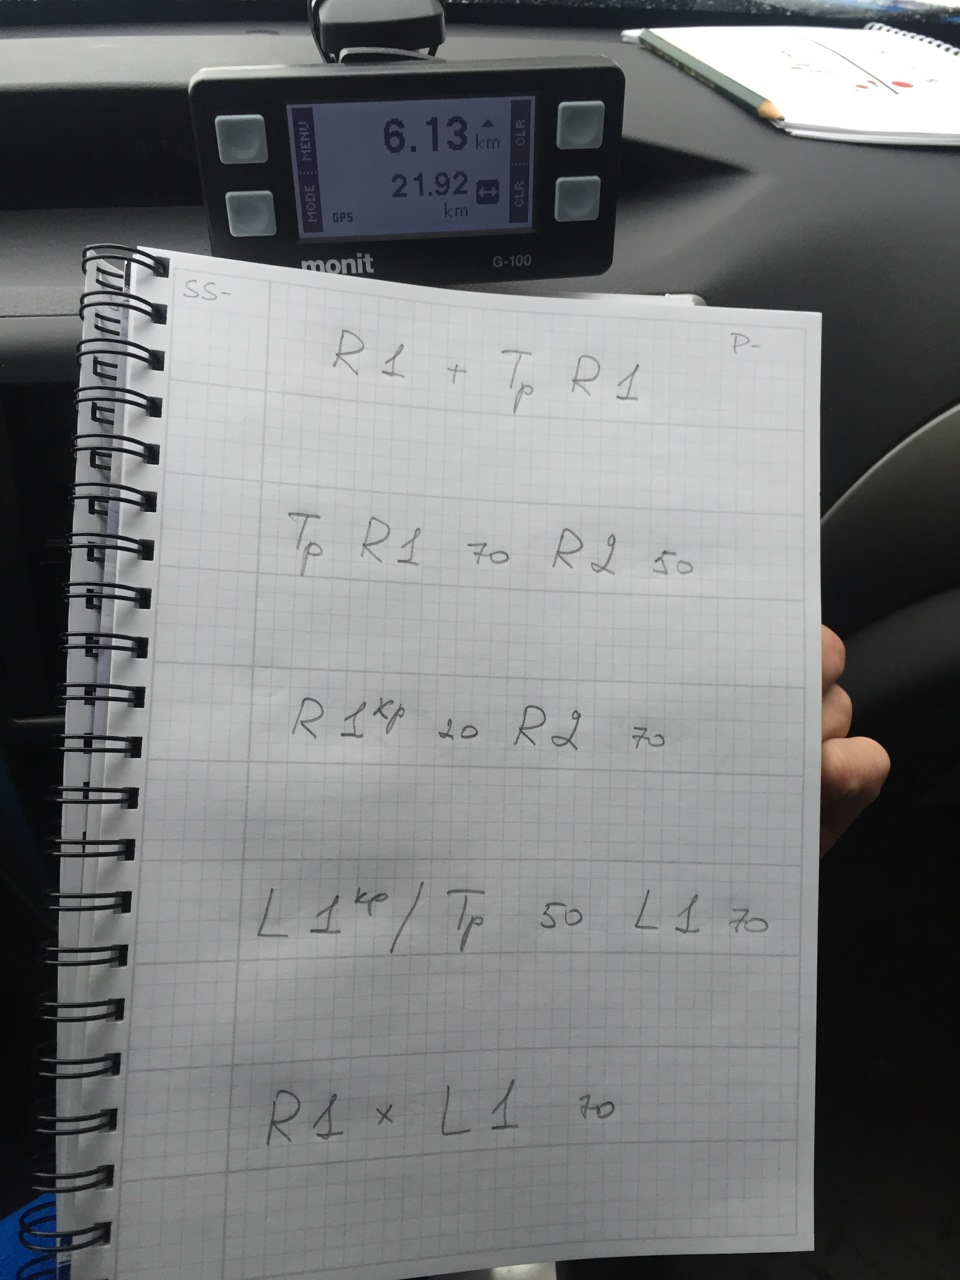 MENU 6.13 km CLR
MODE GPS 21.92 km CLR
monit G-100
SS- P-
R1 + Tp R1
Tp R1 70 R2 50
R1 кр 20 R2 70
L1 кр / Tp 50 L1 70
R1 × L1 70